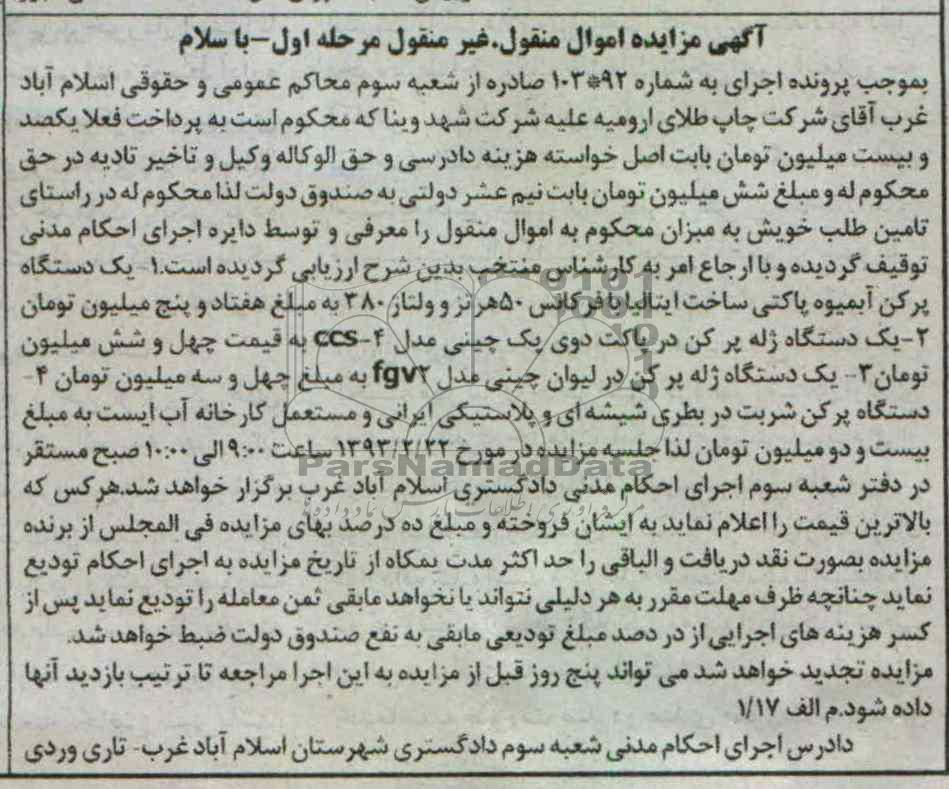 آگهی مزایده اموال منقول.غیر منقول مرحله اول-با سلام
بموجب پرونده اجرای به شماره ۹۲*۱۰۳ صادره از شعبه سوم محاکم عمومی و حقوقی اسلام آباد
غرب آقای شرکت چاپ طلای ارومیه علیه شرکت شهد وینا که محکوم است به پرداخت فعلا یکصد
و بیست میلیون تومان بابت اصل خواسته هزینه دادرسی و حق الوکاله وکیل و تاخیر تادیه در حق
محکوم له و مبلغ شش میلیون تومان بابت نیم عشر دولتی به صندوق دولت لذا محکوم له در راستای
تامین طلب خویش به میزان محکوم به اموال منقول را معرفی و توسط دایره اجرای احکام مدنی
توقیف گردیده و با ارجاع امر به کارشناس منتخب بدین شرح ارزیابی گردیده است.۱- یک دستگاه
پرکن آبمیوه پاکتی ساخت ایتالیا با فرکانس ۵۰هرتز و ولتاژ ۳۸۰ به مبلغ هفتاد و پنج میلیون تومان
۲-یک دستگاه ژله پر کن در پاکت دوی پک چینی مدل ccs-۴ به قیمت چهل و شش میلیون
تومان۳- یک دستگاه ژله پر کن در لیوان چینی مدل fgv۲ به مبلغ چهل و سه میلیون تومان ۴-
دستگاه پرکن شربت در بطری شیشه ای و پلاستیکی ایرانی و مستعمل کارخانه آب ایست به مبلغ
بیست و دو میلیون تومان لذا جلسه مزایده در مورخ ۱۳۹۳/۲/۲۲ ساعت ۹:۰۰ الی ۱۰:۰۰ صبح مستقر
در دفتر شعبه سوم اجرای احکام مدنی دادگستری اسلام آباد غرب برگزار خواهد شد.هرکس که
بالاترین قیمت را اعلام نماید به ایشان فروخته و مبلغ ده درصد بهای مزایده فی المجلس از برنده
مزایده بصورت نقد دریافت و الباقی را حد اکثر مدت یمکاه از تاریخ مزایده به اجرای احکام تودیع
نماید چنانچه ظرف مهلت مقرر به هر دلیلی نتواند یا نخواهد مابقی ثمن معامله را تودیع نماید پس از
کسر هزینه های اجرایی از در دصد مبلغ تودیعی مابقی به نفع صندوق دولت ضبط خواهد شد.
مزایده تجدید خواهد شد می تواند پنج روز قبل از مزایده به این اجرا مراجعه تا ترتیب بازدید آنها
داده شود.م الف ۱/۱۷
دادرس اجرای احکام مدنی شعبه سوم دادگستری شهرستان اسلام آباد غرب- تاری وردی
ParsNamadData